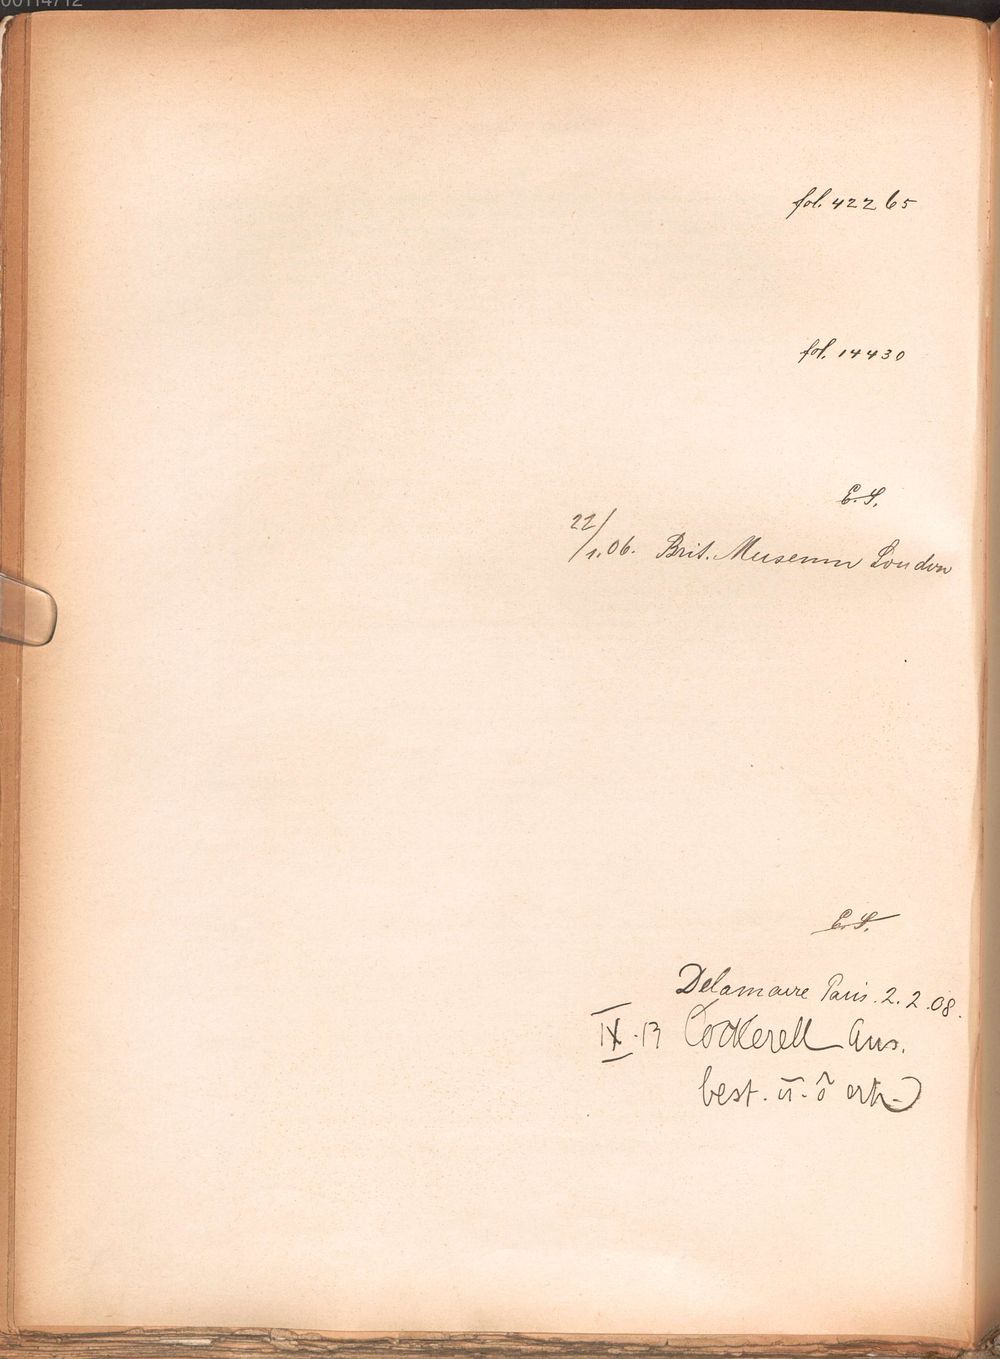 00114712
fol. 42265
fol. 14430
E. S.
22/1.06. Brit. Museum London
E. S.
Delamaire Paris. 2.2.08.
IX. 13 Cockerell Aus.
best. u.